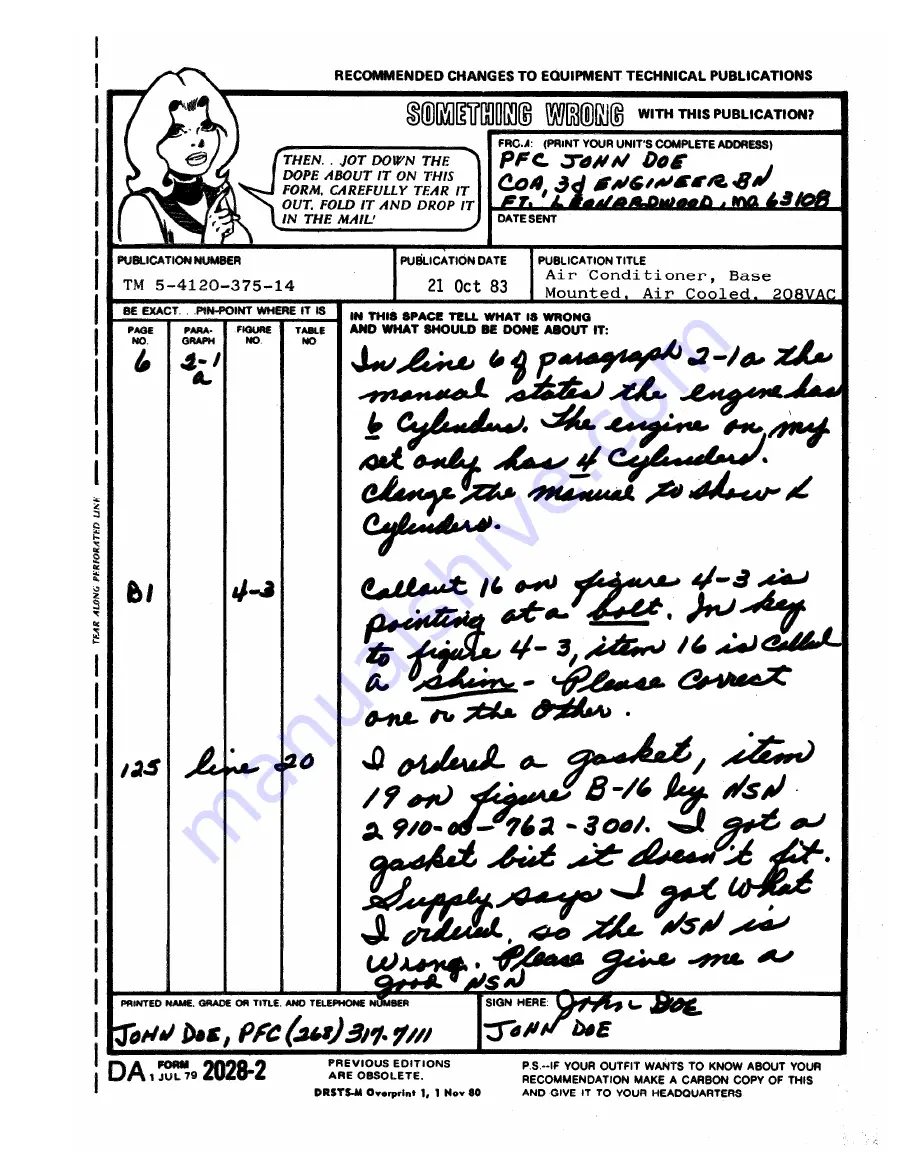 RECOMMENDED CHANGES TO EQUIPMENT TECHNICAL PUBLICATIONS
SOMETHING WRONG WITH THIS PUBLICATION?
THEN. . JOT DOWN THE
DOPE ABOUT IT ON THIS
FORM, CAREFULLY TEAR IT
OUT, FOLD IT AND DROP IT
IN THE MAIL!
(PRINT YOUR UNIT'S COMPLETE ADDRESS)
PFC JOHN DOE
COA, 3d ENGINEER BN
FT. LEONARDWOOD, MO. 63108
DATE SENT
PUBLICATION NUMBER
TM 5-4120-375-14
PUBLICATION DATE
21 Oct 83
PUBLICATION TITLE
Air Conditioner, Base
Mounted, Air Cooled, 208VAC
BE EXACT. . .PIN-POINT WHERE IT IS
PAGE NO.
PARA-GRAPH
FIGURE NO.
TABLE NO
IN THIS SPACE TELL WHAT IS WRONG
AND WHAT SHOULD BE DONE ABOUT IT:
6 2-1 a
In line 6 of paragraph 2-1a the
manual states the engine has
6 Cylinders. The engine on my
set only has 4 Cylinders.
Change the manual to show 4
Cylinders.
B1 4-3
Callout 16 on figure 4-3 is
pointing at a bolt. In key
to figure 4-3, item 16 is called
a shim - Please Correct
one or the other.
125 line 20
I ordered a gasket, item
19 on figure B-16 by NSN
2910-05-762-3001. I got a
gasket but it doesn't fit.
Supply says I got what
I ordered, so the NSN is
wrong. Please give me a
good NSN
PRINTED NAME, GRADE OR TITLE, AND TELEPHONE NUMBER
JOHN DOE, PFC (268) 317-7111
SIGN HERE:
John Doe
JOHN DOE
TEAR ALONG PERFORATED LINE
DA FORM 1 JUL 79 2028-2
PREVIOUS EDITIONS
ARE OBSOLETE.
DRSTS-M Overprint 1, 1 Nov 80
P.S.--IF YOUR OUTFIT WANTS TO KNOW ABOUT YOUR
RECOMMENDATION MAKE A CARBON COPY OF THIS
AND GIVE IT TO YOUR HEADQUARTERS
manualshive.com